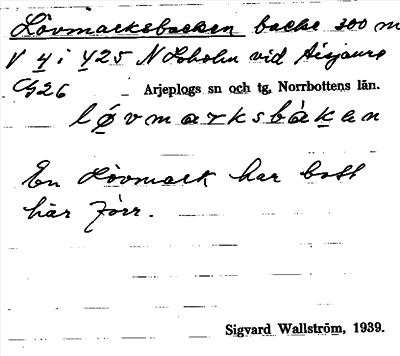 Lövmarksbacken backe 300 m
V 4 i 425 N Löholm vid Aisjaure
C926
Arjeplogs sn och tg, Norrbottens län.
lǿvmarksbàkan
En Lövmark har bott
här förr.
Sigvard Wallström, 1939.